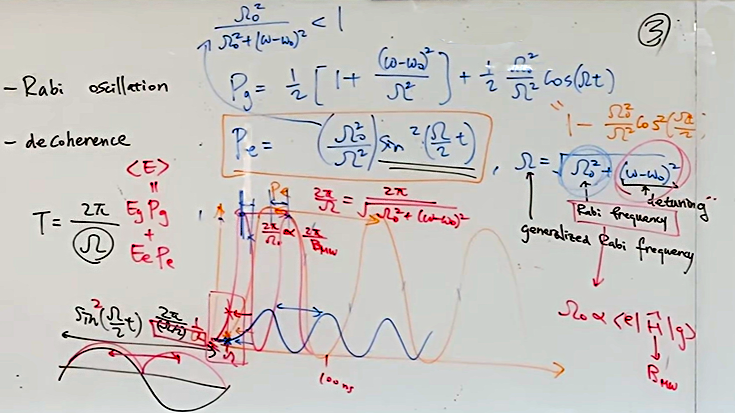 Ω₀² / (Ω₀² + (ω-ω₀)²) < 1
③
- Rabi oscillation
Pg = 1/2 [1 + (ω-ω₀)²/Ω²] + 1/2 Ω₀²/Ω² Cos(Ωt)
- decoherence
Pe = (Ω₀²/Ω²) sin²(Ω/2 t), Ω = √(Ω₀² + (ω-ω₀)²)
detuning
Rabi frequency
generalized Rabi frequency
<E>
=
Eg Pg
+
Ee Pe
T = 2π/Ω
2π/Ω = 2π/√(Ω₀² + (ω-ω₀)²)
2π/Ω₀ ∝ 2π/B_MW
Sin²(Ω/2 t)
100ns
Ω₀ ∝ <e| H |g>
B_MW